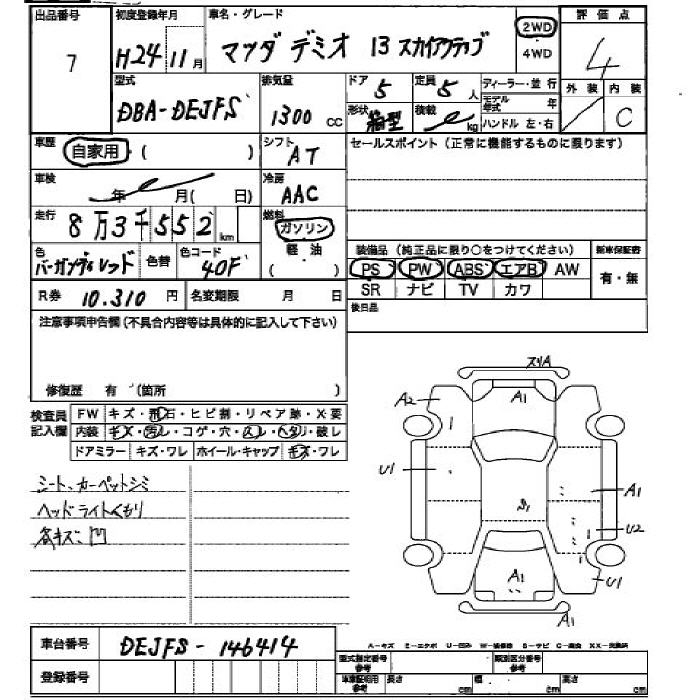 出品番号 初度登録年月 車名・グレード 評価点
7 H24年11月 マツダ デミオ 13 スカイアクティブ 2WD・4WD 4
型式 排気量 ドア 定員 ディーラー・並行 外装 内装
DBA-DEJFS 1300 CC 5 5人 モデル年式 年 C
形状 箱型 積載 kg ハンドル 左・右
車歴 自家用 ( ) シフト AT セールスポイント (正常に機能するものに限ります)
車検 年 月( 日) 冷房 AAC
走行 8万3千552 km 燃料 ガソリン
軽・油
( )
色 バーガンディレッド 色替 色コード 40F 装備品 (純正品に限り○をつけてください) 新車保証書
PS PW ABS エアB AW 有・無
R券 10.310 円 名変期限 月 日 SR ナビ TV カワ
注意事項申告欄(不具合内容等は具体的に記入して下さい) 後日品
修復歴 有 (箇所 )
検査員記入欄 FW キズ・飛石・ヒビ割・リペア跡・X・要
内装 キズ・汚レ・コゲ・穴・スレ・ヘタリ・破レ
ドアミラー キズ・ワレ ホイール・キャップ キズ・ワレ
シート、カーペットシミ
ヘッドライトくもり
各キズ、凹
スリA
A1
A2
U1
A1
U2
A1
U1
A1
車台番号 DEJFS-146414
登録番号
A-キズ E-エクボ U-凹ミ W-補修跡 S-サビ C-腐食 XX-交換済
型式指定番号 参考 類別区分番号 参考
車庫証明用 参考 長さ cm 幅 cm 高さ cm